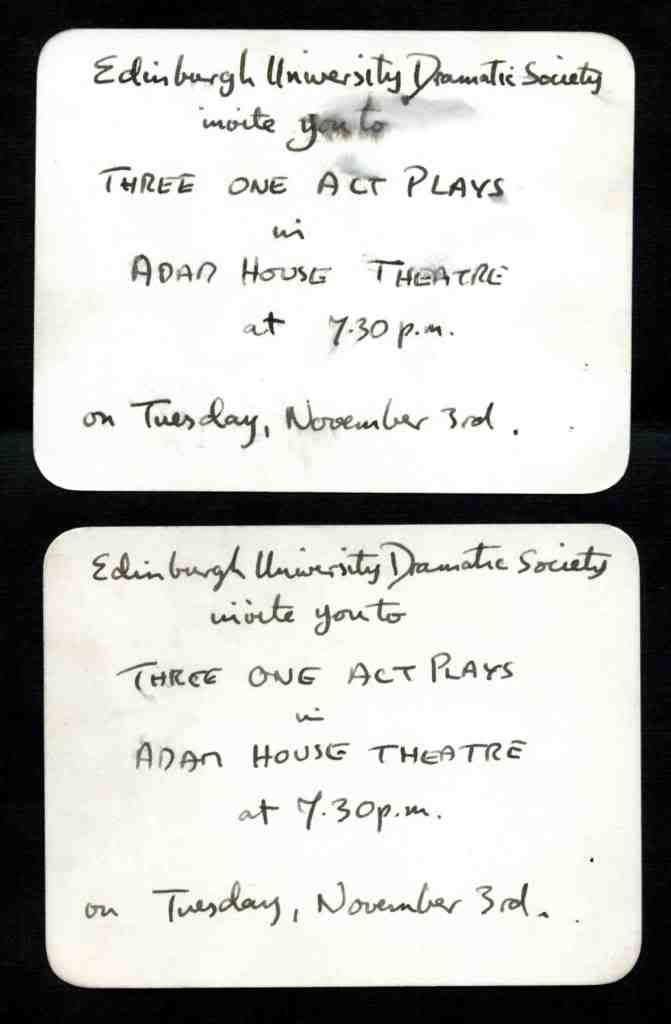 Edinburgh University Dramatic Society
invite you to
THREE ONE ACT PLAYS
in
ADAM HOUSE THEATRE
at 7.30 p.m.
on Tuesday, November 3rd.
Edinburgh University Dramatic Society
invite you to
THREE ONE ACT PLAYS
in
ADAM HOUSE THEATRE
at 7.30p.m.
on Tuesday, November 3rd.